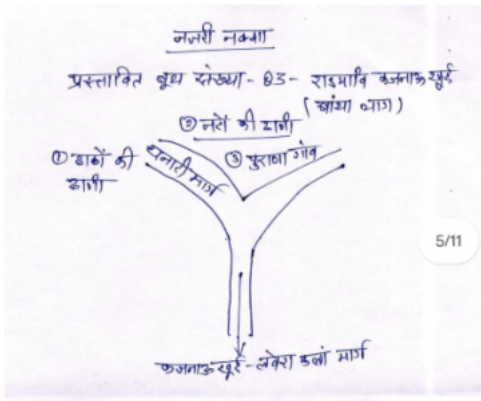 नजरी नक्शा
प्रस्तावित बूथ संख्या - 83 - राउमावि कजनाऊ खुर्द
(बांया भाग)
② नटों की ढाणी
① डाकों की
ढाणी
धनारी मार्ग
③ पुराना गाँव
5/11
कजनाऊ खुर्द - लवेरा कलां मार्ग